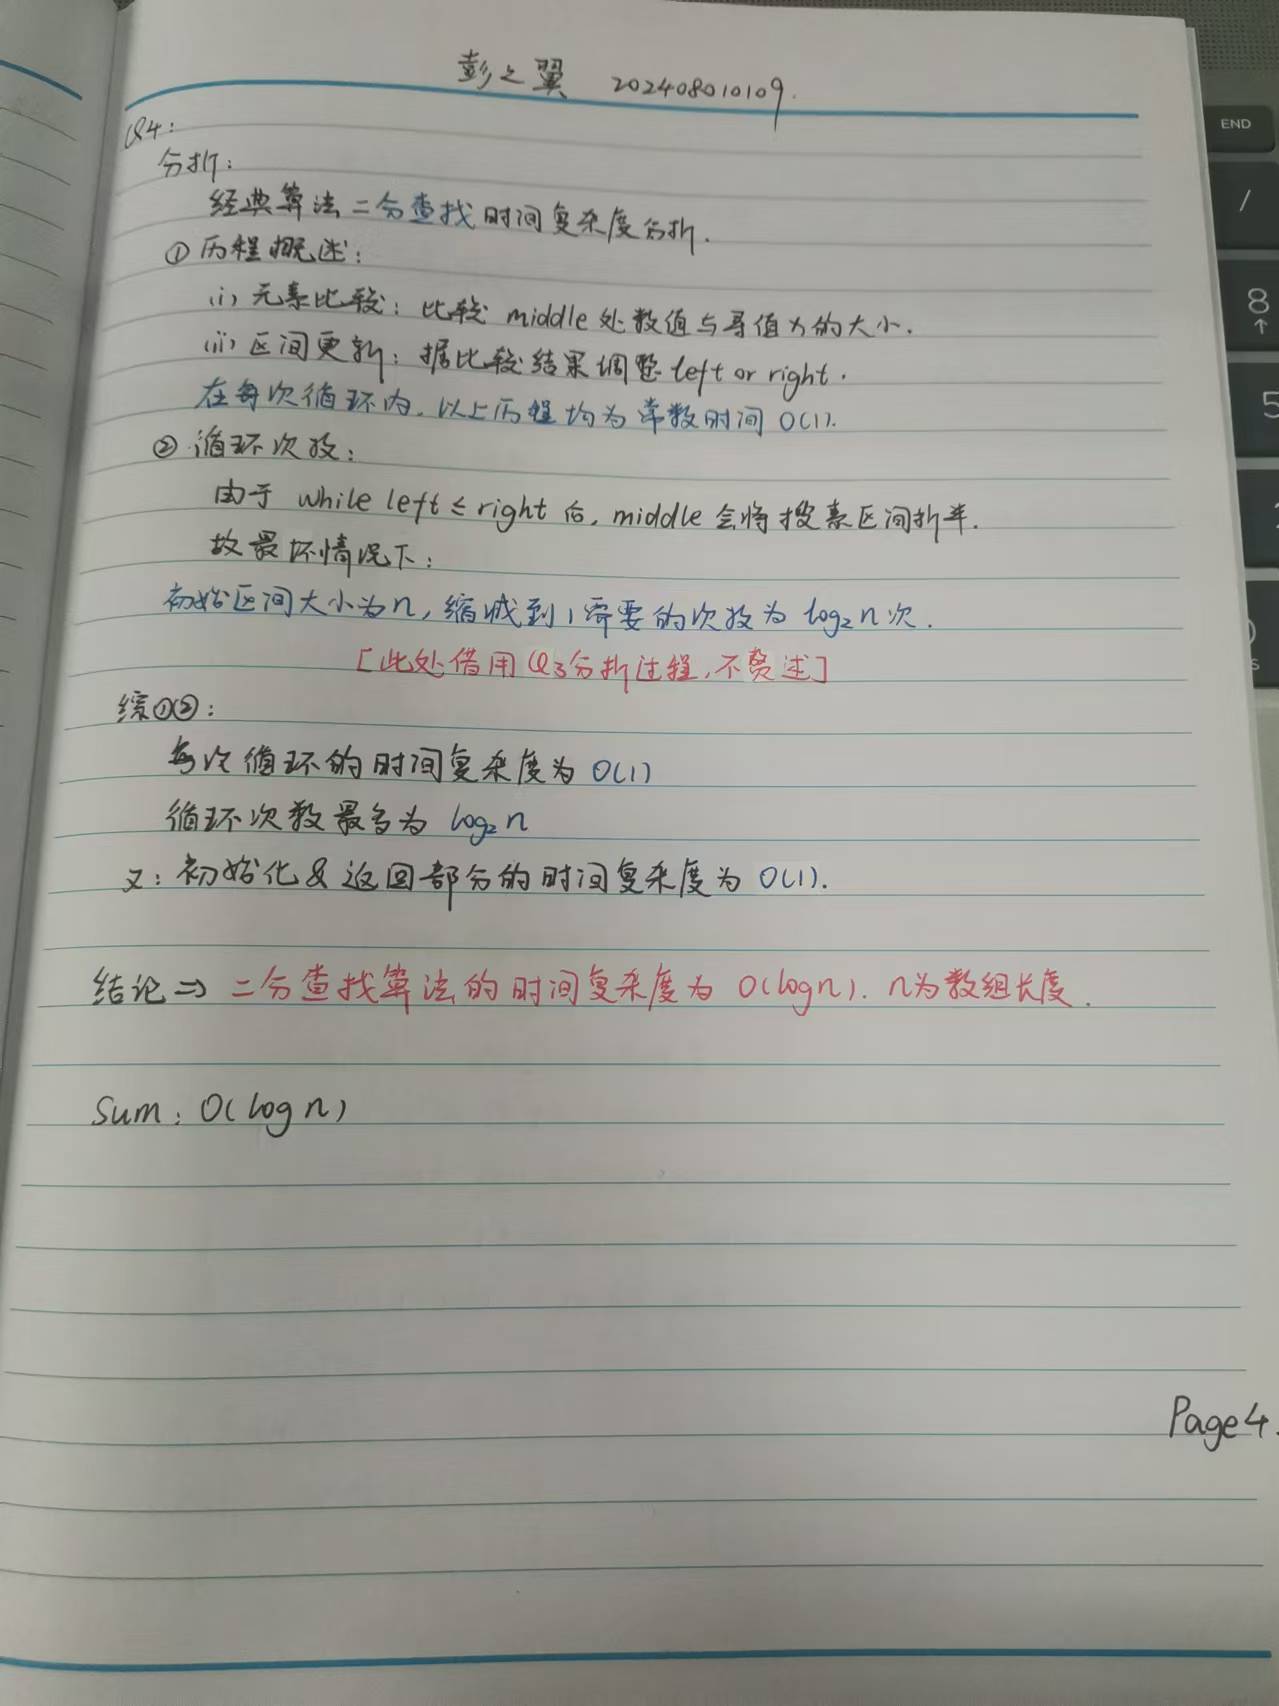 彭之翼 202408010109.
Q4:
分析:
经典算法二分查找时间复杂度分析.
① 历程概述:
(i) 元素比较: 比较 middle 处数值与寻值 x 的大小.
(ii) 区间更新: 据比较结果调整 left or right.
在每次循环内, 以上历程均为常数时间 O(1).
② 循环次数:
由于 while left ≤ right 后, middle 会将搜素区间折半.
故最坏情况下:
初始区间大小为n, 缩减到1需要的次数为 log₂n次.
[此处借用Q3分析过程,不赘述]
综①②:
每次循环的时间复杂度为 O(1)
循环次数最多为 log₂n
又: 初始化&返回部分的时间复杂度为 O(1).
结论⇒ 二分查找算法的时间复杂度为 O(logn). n为数组长度.
Sum: O(logn)
Page4.
END
/
8
↑
5